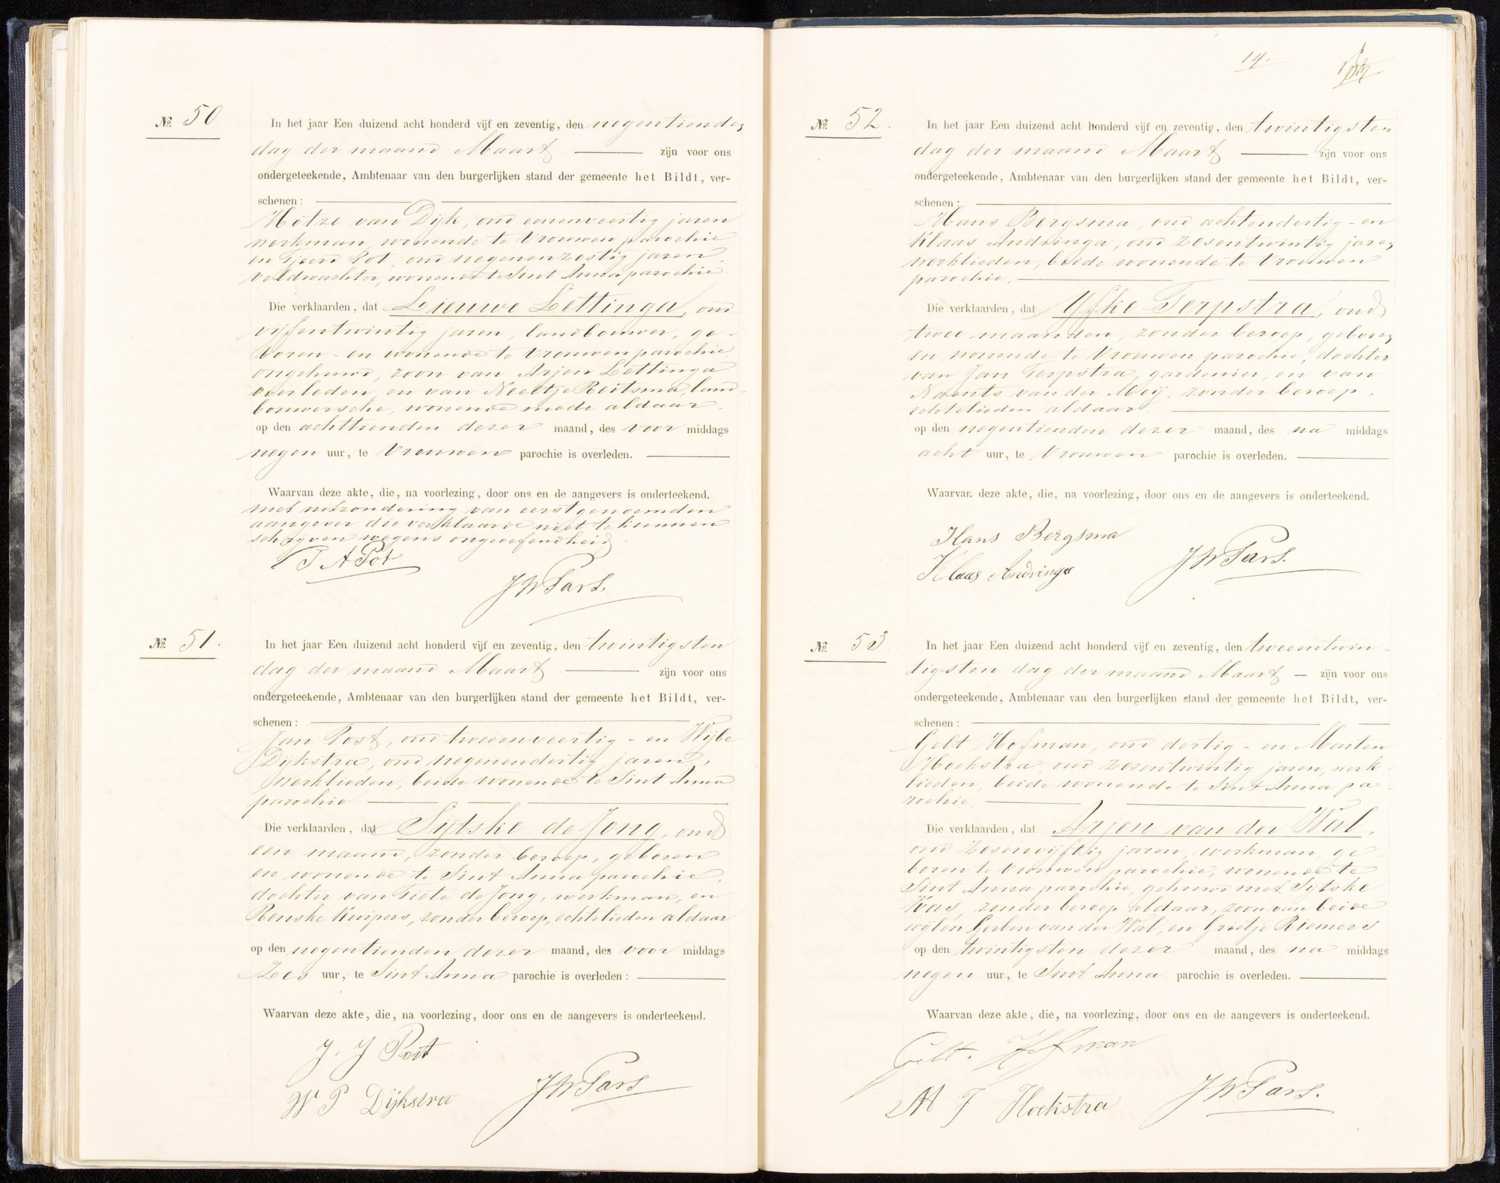 № 50
In het jaar Een duizend acht honderd vijf en zeventig, den negentienden
dag der maand Maart zijn voor ons
ondergeteekende, Ambtenaar van den burgerlijken stand der gemeente het Bildt, ver-
schenen:
Hotze van Dijk, oud eenenveertig jaren
werkman, wonende te Vrouwen parochie
en Tjeerd Pot, oud negenenzestig jaren
veldwachter, wonende te Sint Anna parochie
Die verklaarden, dat Lieuwe Lettinga, oud
vijfentwintig jaren, landbouwer, ge-
boren en wonende te Vrouwen parochie
ongehuwd, zoon van Arjen Lettinga
overleden, en van Neeltje Reitsma, land-
bouwersche, wonende mede aldaar.
op den achttienden dezer maand, des voor middags
negen uur, te Vrouwen parochie is overleden.
Waarvan deze akte, die, na voorlezing, door ons en de aangevers is onderteekend.
met uitzondering van eerstgenoemden
aangever die verklaarde niet te kunnen
schrijven wegens ongeoefendheid.
T A Pot
JW Pars.
№ 51.
In het jaar Een duizend acht honderd vijf en zeventig, den twintigsten
dag der maand Maart zijn voor ons
ondergeteekende, Ambtenaar van den burgerlijken stand der gemeente het Bildt, ver-
schenen:
Jan Post, oud tweeenveertig - en Wijbe
Dijkstra, oud negenendertig jaren,
werklieden, beide wonende te Sint Anna
parochie
Die verklaarden, dat Sijtske de Jong, oud
een maand, zonder beroep, geboren
en wonende te Sint Anna parochie,
dochter van Tiete de Jong, werkman, en
Renske Kuipers, zonder beroep, echtelieden aldaar
op den negentienden dezer maand, des voor middags
zes uur, te Sint Anna parochie is overleden:
Waarvan deze akte, die, na voorlezing, door ons en de aangevers is onderteekend.
J. J Post
W P Dijkstra
JW Pars.
14.
№ 52.
In het jaar Een duizend acht honderd vijf en zeventig, den twintigsten
dag der maand Maart zijn voor ons
ondergeteekende, Ambtenaar van den burgerlijken stand der gemeente het Bildt, ver-
schenen:
Hans Bergsma, oud achtendertig - en
Klaas Andringa, oud zesentwintig jaren,
werklieden, beide wonende te Vrouwen
parochie.
Die verklaarden, dat Ijfke Terpstra, oud
twee maanden, zonder beroep, geboren
en wonende te Vrouwen parochie, dochter
van Jan Terpstra, gardenier, en van
Naants van der Meij, zonder beroep,
echtelieden aldaar
op den negentienden dezer maand, des na middags
acht uur, te Vrouwen parochie is overleden.
Waarvan deze akte, die, na voorlezing, door ons en de aangevers is onderteekend.
Hans Bergsma
Klaas Andringa
JW Pars.
№ 53
In het jaar Een duizend acht honderd vijf en zeventig, den tweeentwin-
tigsten dag der maand Maart zijn voor ons
ondergeteekende, Ambtenaar van den burgerlijken stand der gemeente het Bildt, ver-
schenen:
Gelt Hofman, oud dertig - en Marten
Hoekstra, oud zesentwintig jaren, werk-
lieden, beide wonende te Sint Anna pa-
rochie
Die verklaarden, dat Arjen van der Wal,
oud zesenvijftig jaren, werkman, ge
boren te Vrouwen parochie, wonende te
Sint Anna parochie, gehuwd met Sijtske
Vaas, zonder beroep aldaar, zoon van beide
wijlen Gerben van der Wal, en Grietje Riemers
op den twintigsten dezer maand, des na middags
negen uur, te Sint Anna parochie is overleden.
Waarvan deze akte, die, na voorlezing, door ons en de aangevers is onderteekend.
Gelt. Hofman
M T Hoekstra
JW Pars.